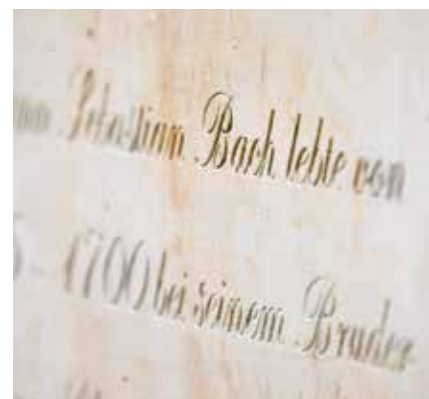 Sebastian Bach lebte von
1700 bei seinem Bruder